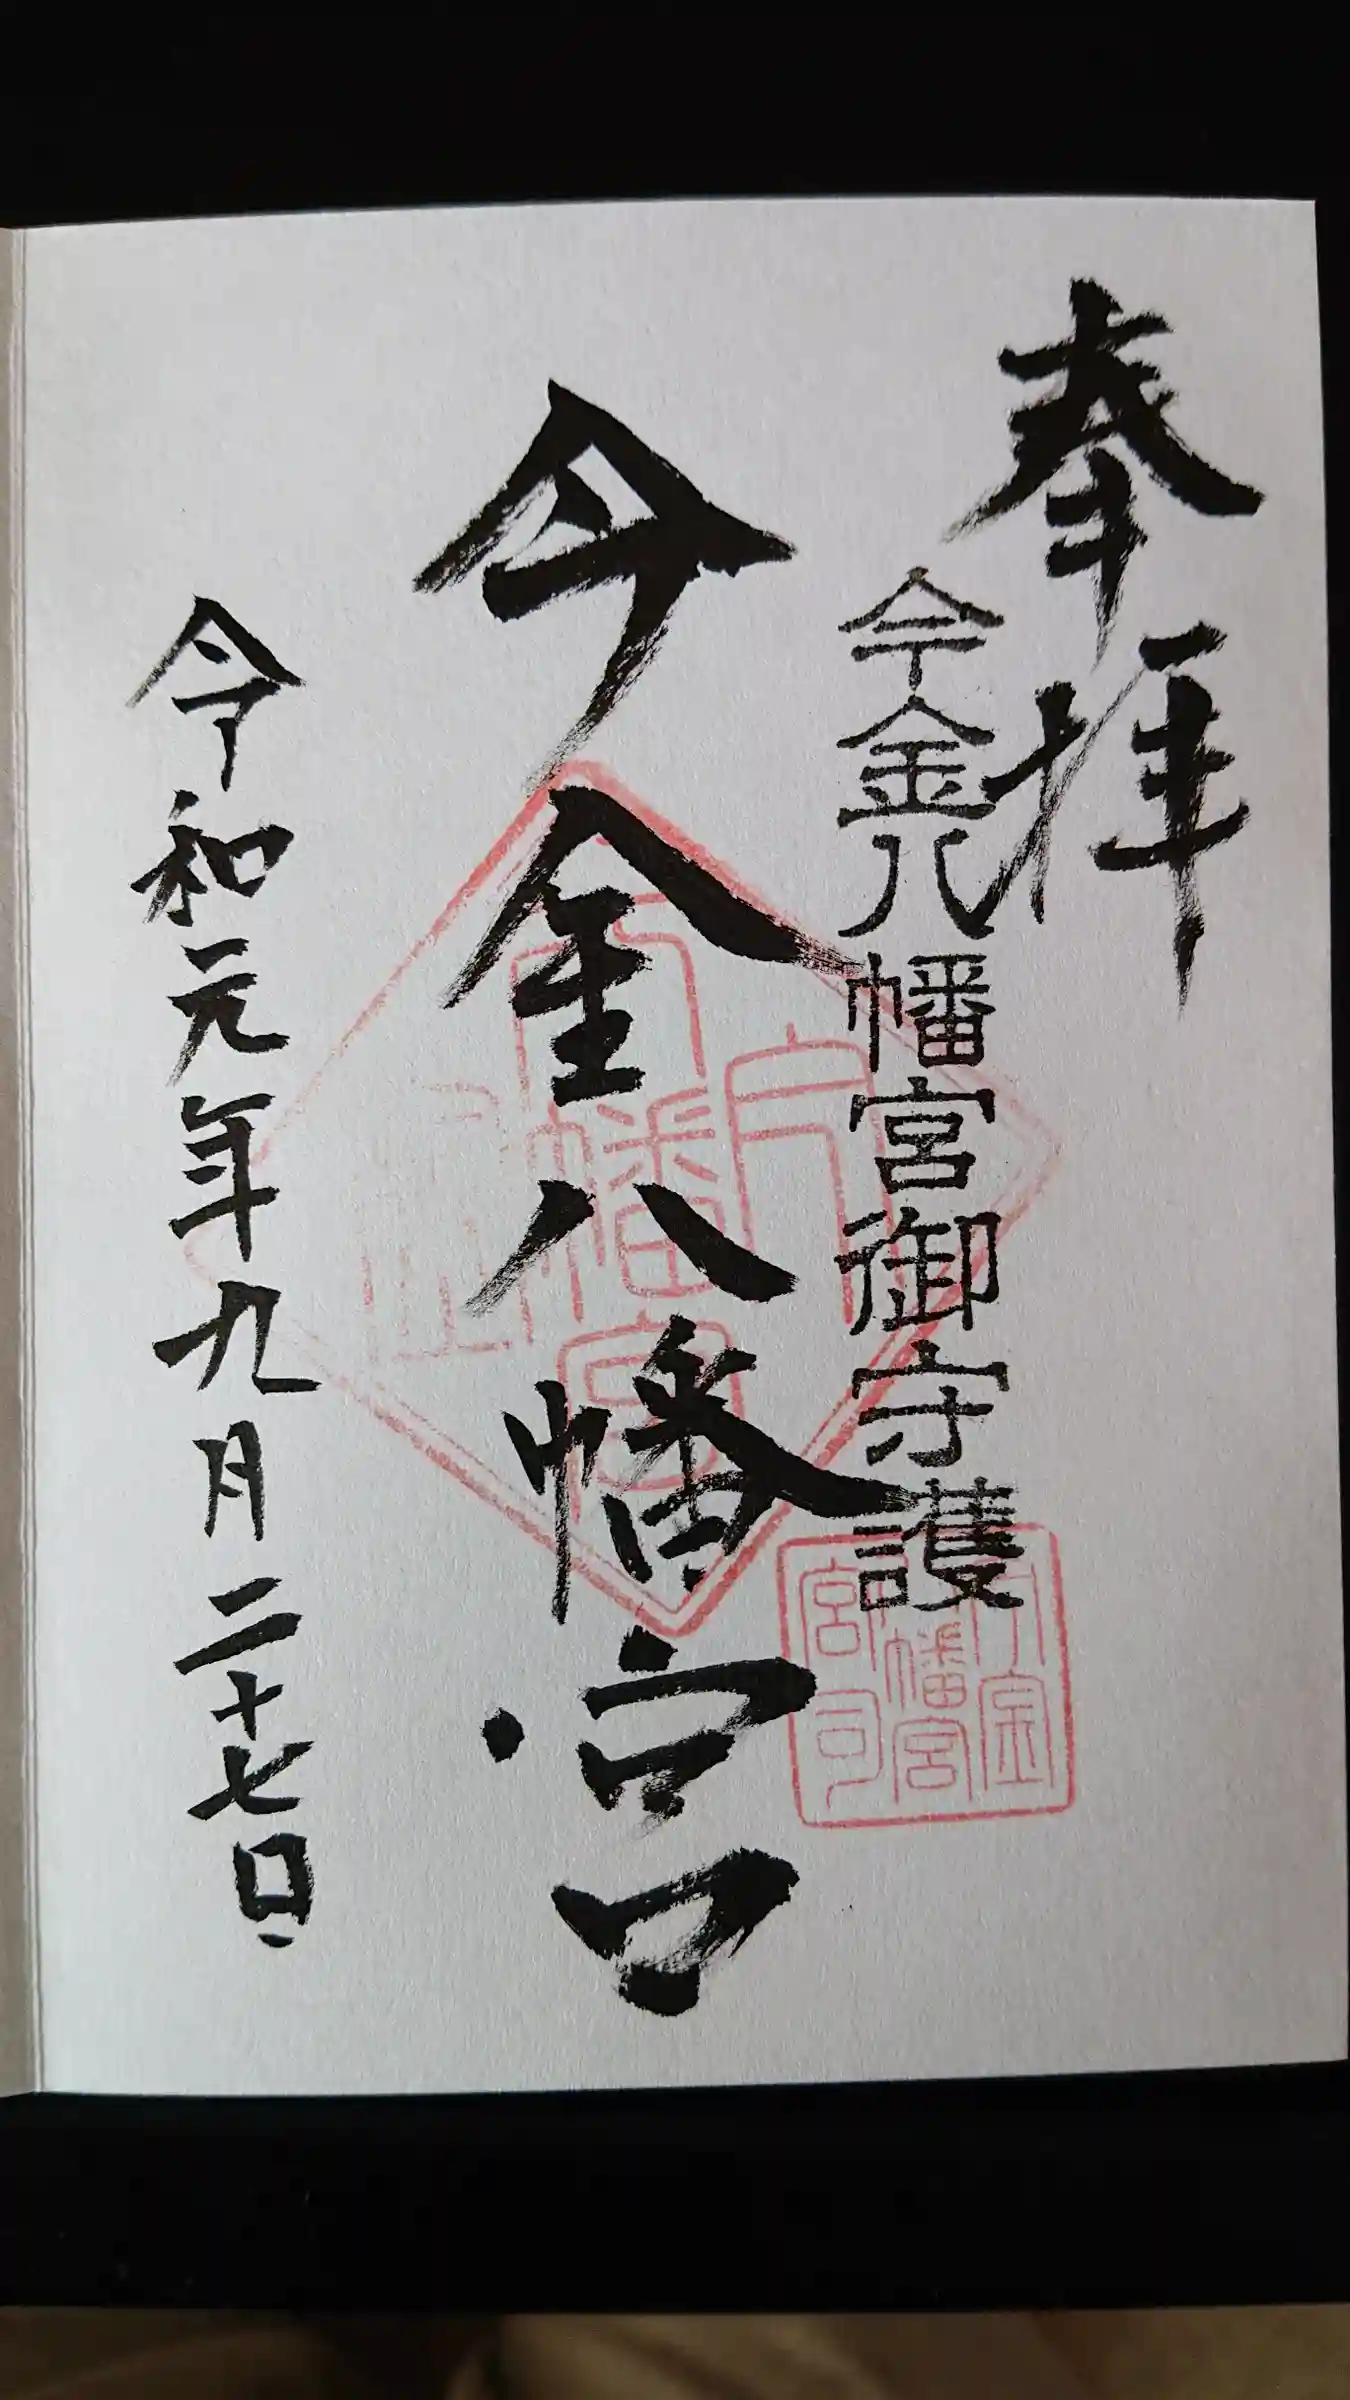 奉拝
今金八幡宮御守護
今金八幡宮
令和元年九月二十七日
今金
八幡宮
宮司